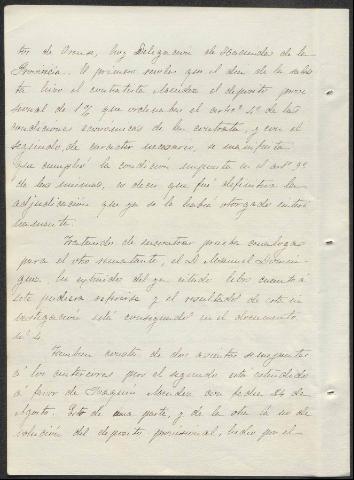 tos de Orense, hoy Delegacion de Hacienda de la
Provincia. El primero revela que el dia de la subas
ta hizo el contratista Mendez el deposito provi
sional del 1% que ordenaba el artº 4º de las
condiciones economicas de la contrata, y con el
segundo, de caracter necesario, se manifiesta
que cumplió la condición impuesta en el artº 9º
de las mismas, es decir que fué definitiva la
adjudicación que ya se le habia otorgado anteri
ormente.
Tratando de encontrar prueba analoga
para el otro rematante, el D. Manuel Domin
guez, ha extraidos del ya citado libro cuanto á
este pudiera referirse y el resultado de esta in
vestigación está consignado en el documento
nº 4.
Tambien consta de dos asientos semejantes
á los anteriores pero el segundo esta extendido
á favor de Joaquin Mendez con fecha 24 de
Agosto. Esto de una parte, y de la otra la de
volución del deposito provisional, hecho por el